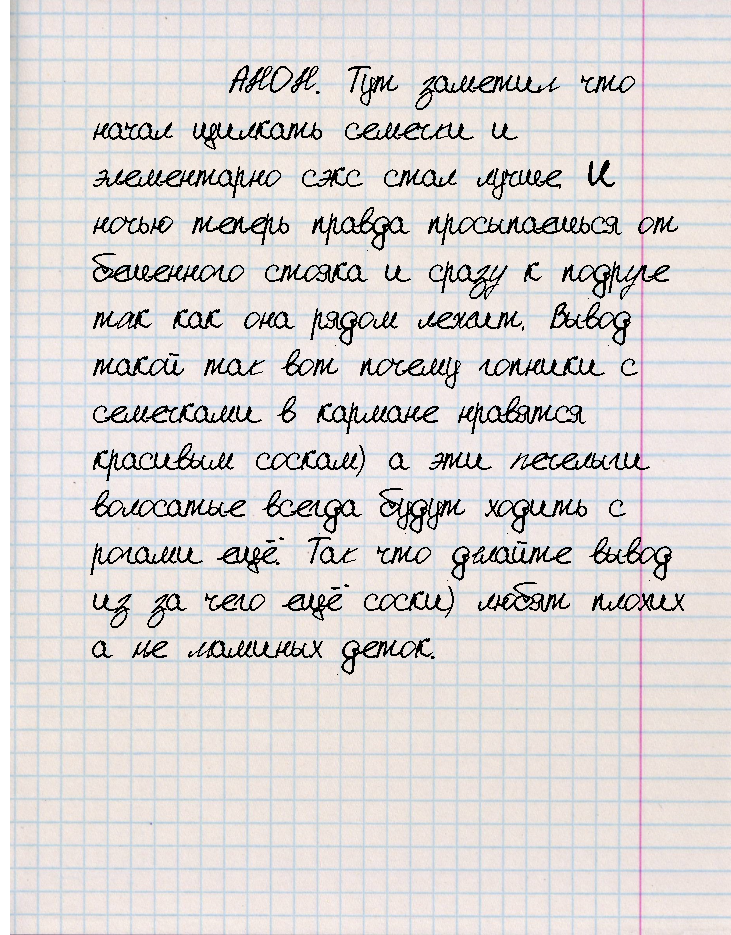 АНОН. Тут заметил что
начал щилкать семечки и
элементарно сэкс стал лучше. И
ночью теперь правда просыпаешься от
бешенного стояка и сразу к подруге
так как она рядом лежит. Вывод
такой так вот почему гопники с
семечками в кармане нравятся
красивым соскам) а эти печелыги
волосатые всегда будут ходить с
рогами ещё. Так что делайте вывод
из за чего ещё соски) любят плохих
а не маминых деток.